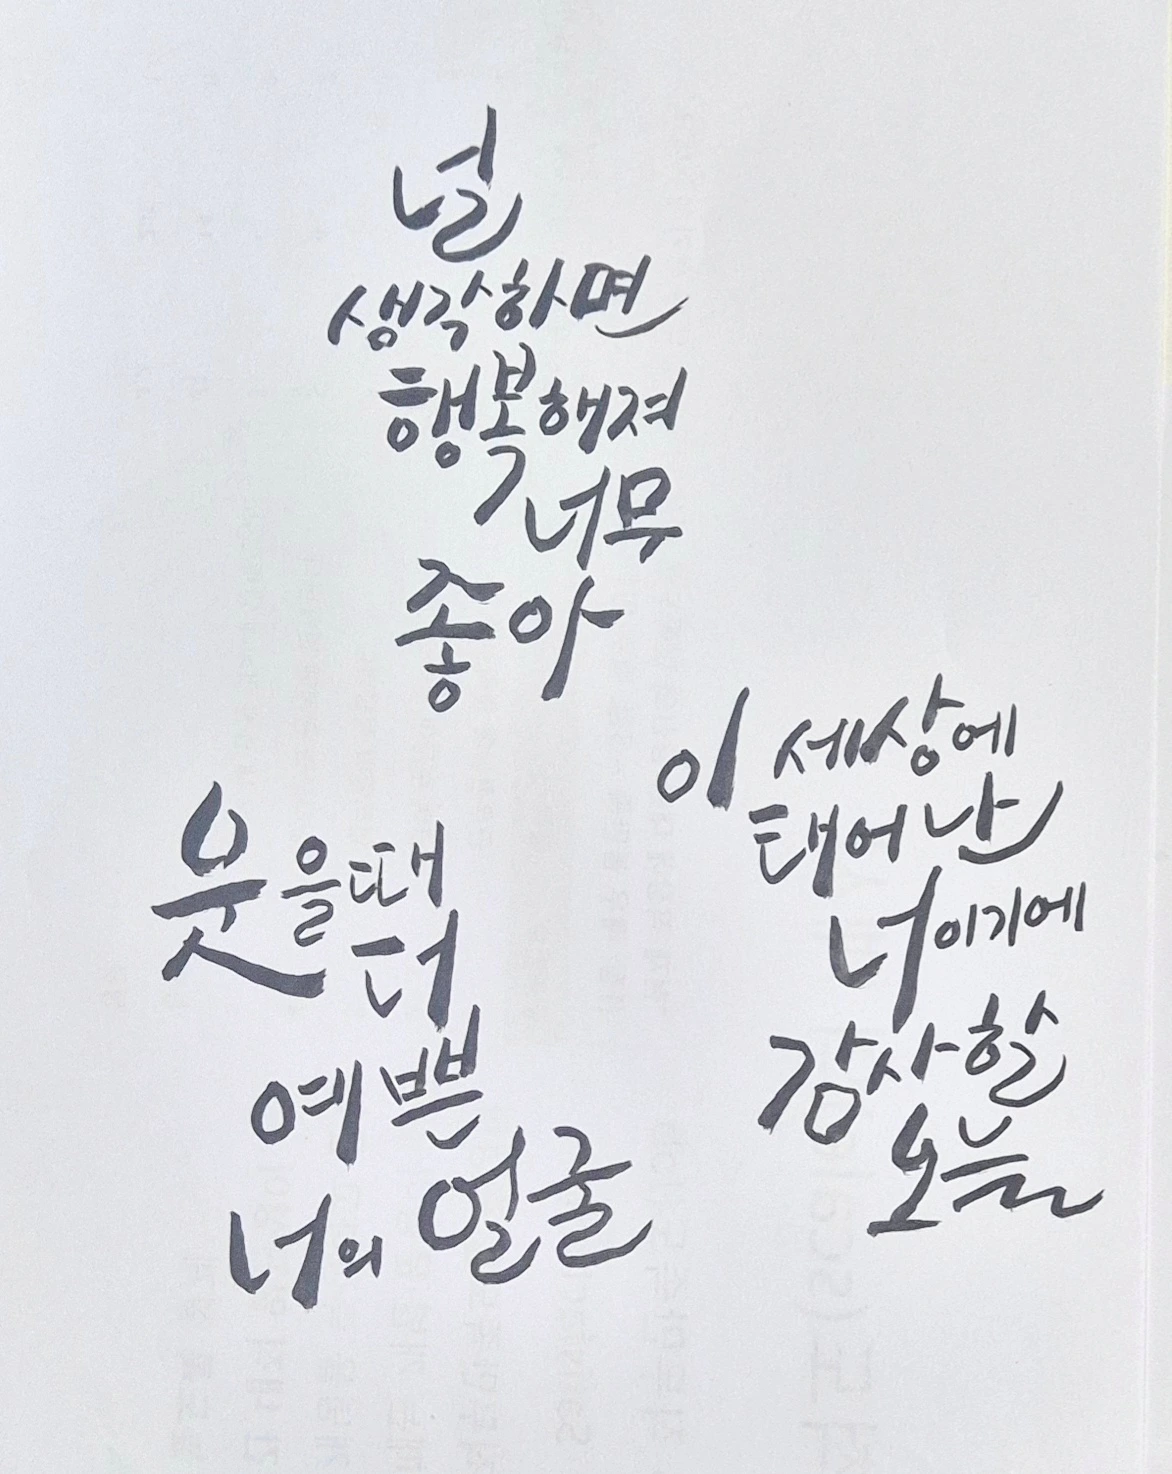 널
생각하면
행복해져
너무
좋아
웃을때
더
예쁜
너의 얼굴
이 세상에
태어난
너이기에
감사할
오늘